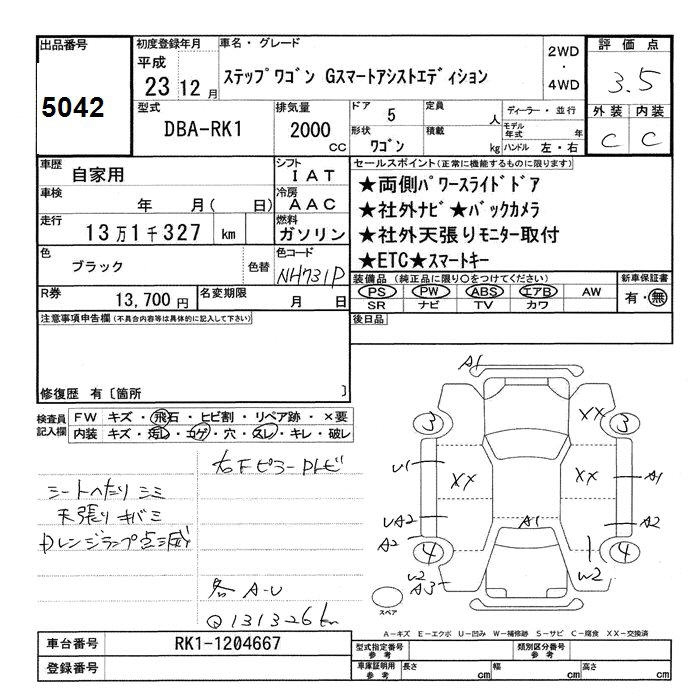 出品番号
5042
初度登録年月
平成
23 12 月
車名・グレード
ステップワゴン Gスマートアシストエディション
2WD
・
4WD
評価点
3.5
外装 内装
C C
型式
DBA-RK1
排気量
2000
CC
ドア 5
形状
ワゴン
定員 人
積載 kg
ディーラー・並行
モデル年式 年
ハンドル 左・右
車歴
自家用
シフト
IAT
車検
年 月( 日)
冷房
AAC
走行
13万1千327 km
燃料
ガソリン
色
ブラック
色替
色コード
NH731P
R券
13,700 円
名変期限
月 日
セールスポイント(正常に機能するものに限ります)
★両側パワースライドドア
★社外ナビ★バックカメラ
★社外天張りモニター取付
★ETC★スマートキー
装備品 (純正品に限り○をつけてください)
PS PW ABS エアB AW
SR ナビ TV カワ
新車保証書
有・無
後日品
注意事項申告欄(不具合内容等は具体的に記入して下さい)
修復歴 有〔箇所 〕
検査員
記入欄
FW キズ・飛石・ヒビ割・リペア跡・×要
内装 キズ・汚レ・コゲ・穴・スレ・キレ・破レ
右Fピラー
シートへたり シミ
天張り キバミ
Dレンジランプ点滅
各 A-U
Q 131326km
A1
3 XX 3
U1 XX XX A1
UA2 A1 A2
A2 4 4
W2 W2
A3
スペア
A-キズ E-エクボ U-凹み W-補修跡 S-サビ C-腐食 XX-交換済
車台番号
RK1-1204667
登録番号
型式指定番号
参考
類別区分番号
参考
車庫証明用
参考
長さ cm
幅 cm
高さ cm